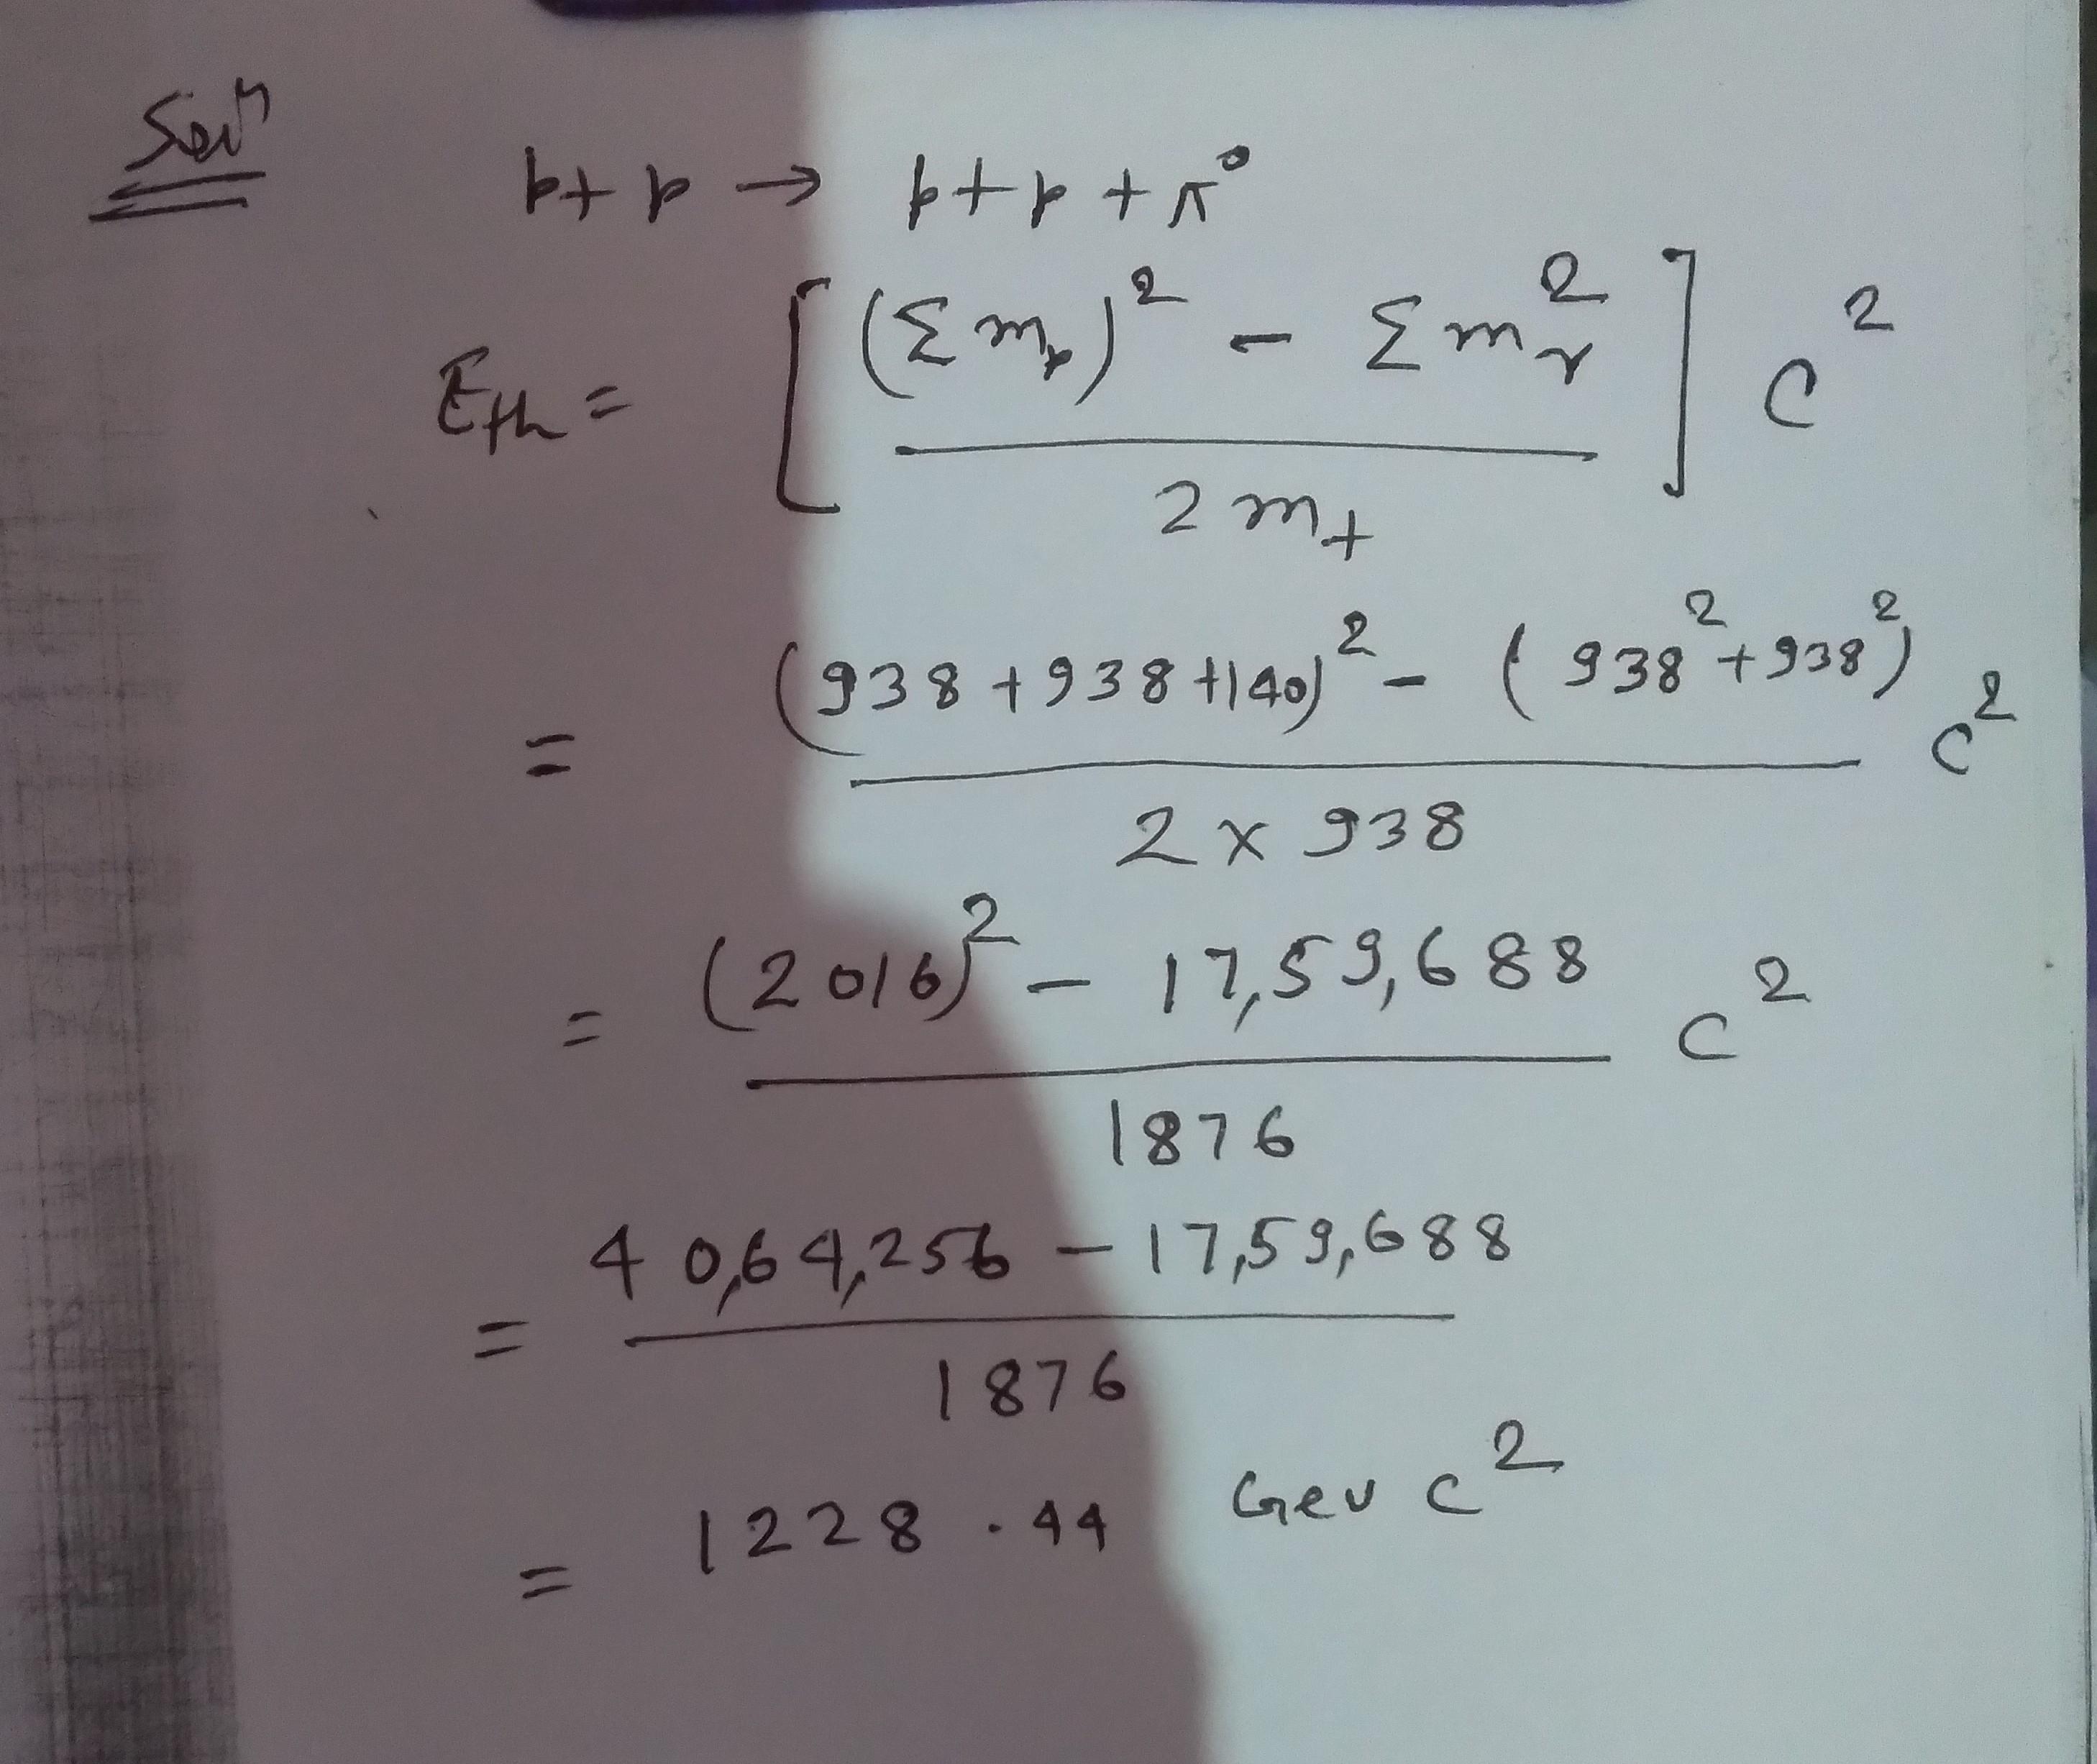 Solⁿ
p + p → p + p + π⁰
Eth = [ ( (Σ mp)² - Σ mr² ) / 2 mt ] c²
= ( (938 + 938 + 140)² - (938² + 938²) ) / ( 2 × 938 ) c²
= ( (2016)² - 17,59,688 ) / 1876 c²
= ( 40,64,256 - 17,59,688 ) / 1876
= 1228.44 Gev c²